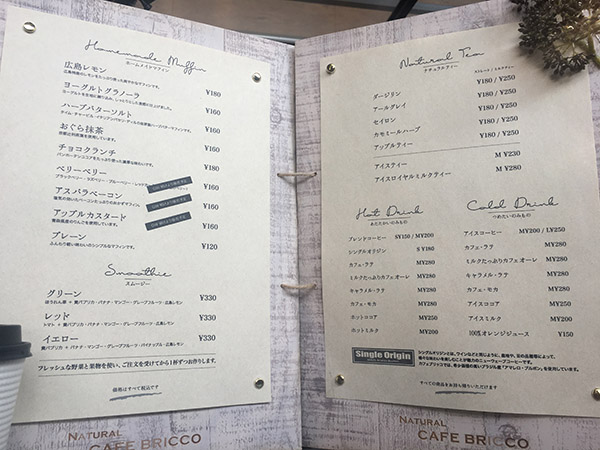 Homemade Muffin
ホームメイドマフィン
広島レモン ¥180
ヨーグルトグラノーラ ¥160
ハーブバターソルト ¥160
おぐら抹茶 ¥160
チョコクランチ ¥180
ベリーベリー ¥160
アスパラベーコン ¥160
アップルカスタード ¥160
プレーン ¥120
ふんわり軽い味わいのシンプルなマフィンです。
Smoothie
スムージー
グリーン ¥330
レッド ¥330
イエロー ¥330
フレッシュな野菜と果物を使い、ご注文を受けてから1杯ずつお作りします。
価格はすべて税込です
NATURAL
CAFE BRICCO
Natural Tea
ナチュラルティー
ストレート / ミルクティー
ダージリン ¥180 / ¥250
アールグレイ ¥180 / ¥250
セイロン ¥180 / ¥250
カモミールハーブ ¥180 / ¥250
アップルティー ¥180 / ¥250
アイスティー M ¥230
アイスロイヤルミルクティー M ¥280
Hot Drink
あたたかいのみもの
ブレンドコーヒー S¥150 / M¥200
シングルオリジン S ¥180
カフェ・ラテ M¥280
ミルクたっぷりカフェオーレ M¥280
キャラメル・ラテ M¥280
カフェ・モカ M¥280
ホットココア M¥250
ホットミルク M¥200
Cold Drink
つめたいのみもの
アイスコーヒー M¥200 / L¥250
カフェ・ラテ M¥280
ミルクたっぷりカフェオーレ M¥280
キャラメル・ラテ M¥280
カフェ・モカ M¥280
アイスココア M¥250
アイスミルク M¥200
100%オレンジジュース ¥150
Single Origin
シングルオリジンとは、ワインなどと同じように、
すべての商品をお持ち帰りいただけます
NATURAL
CAFE BRICCO